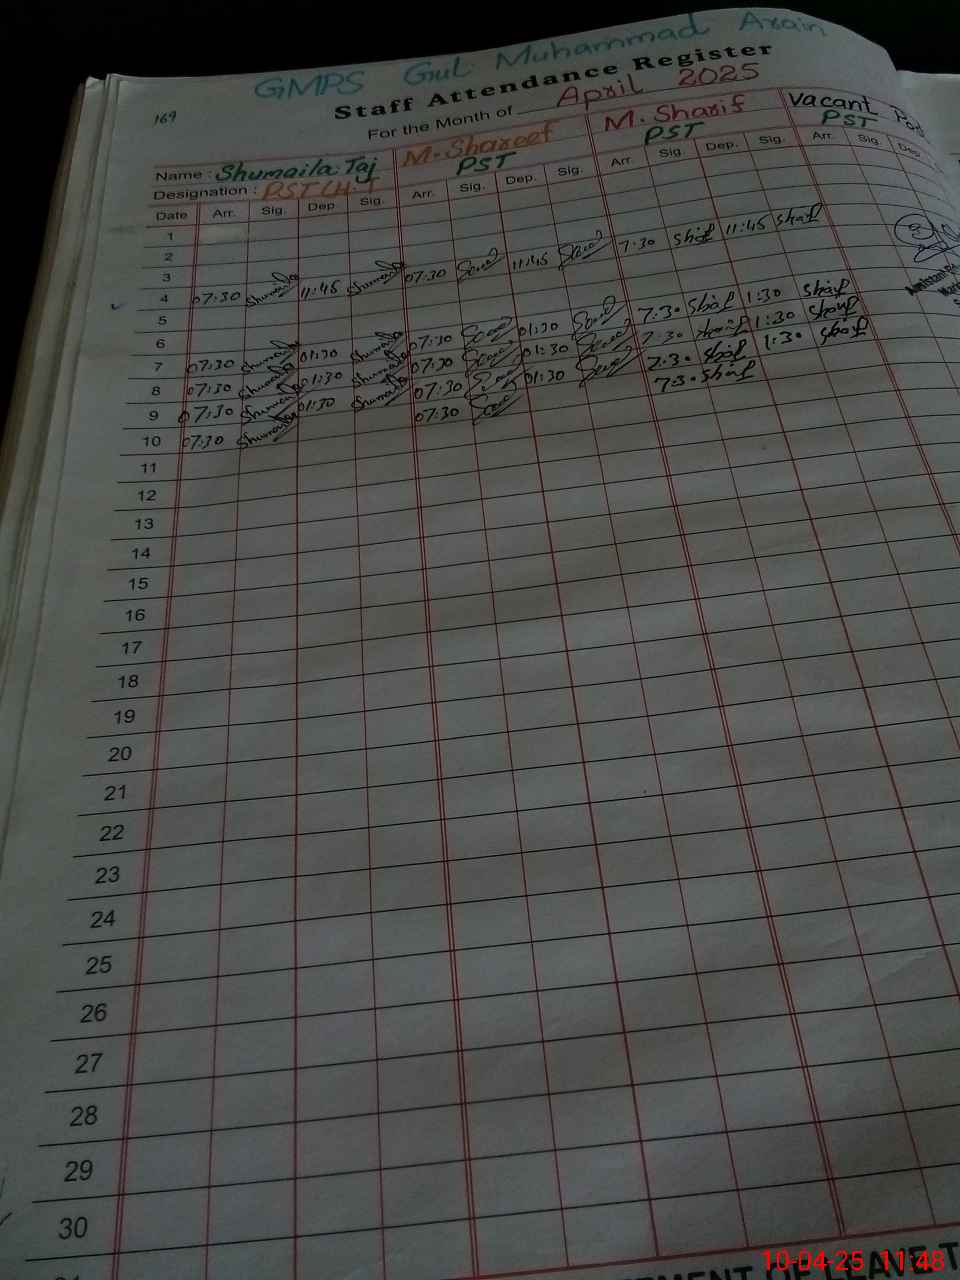 GMPS Gul Muhammad Arain
169
Staff Attendance Register
For the Month of April 2025
Name : Shumaila Taj M. Shareef M. Sharif Vacant
Designation : PST PST PST
Date Arr. Sig. Dep. Sig. Arr. Sig. Dep. Sig. Arr. Sig. Dep. Sig. Arr. Sig. Dep.
1
2
3
4 07:30 Shumaila 11:45 Shumaila 07:30 11:45 7:30 Sharif 11:45 Sharif
5
6
7 07:30 Shumaila 01:30 Shumaila 07:30 01:30 7:30 Sharif 1:30 Sharif
8 07:30 Shumaila 01:30 Shumaila 07:30 01:30 7:30 Sharif 1:30 Sharif
9 07:30 Shumaila 01:30 Shumaila 07:30 01:30 7:30 Sharif 1:30 Sharif
10 07:30 Shumaila 07:30 7:30 Sharif
11
12
13
14
15
16
17
18
19
20
21
22
23
24
25
26
27
28
29
30
10-04-25 11:48